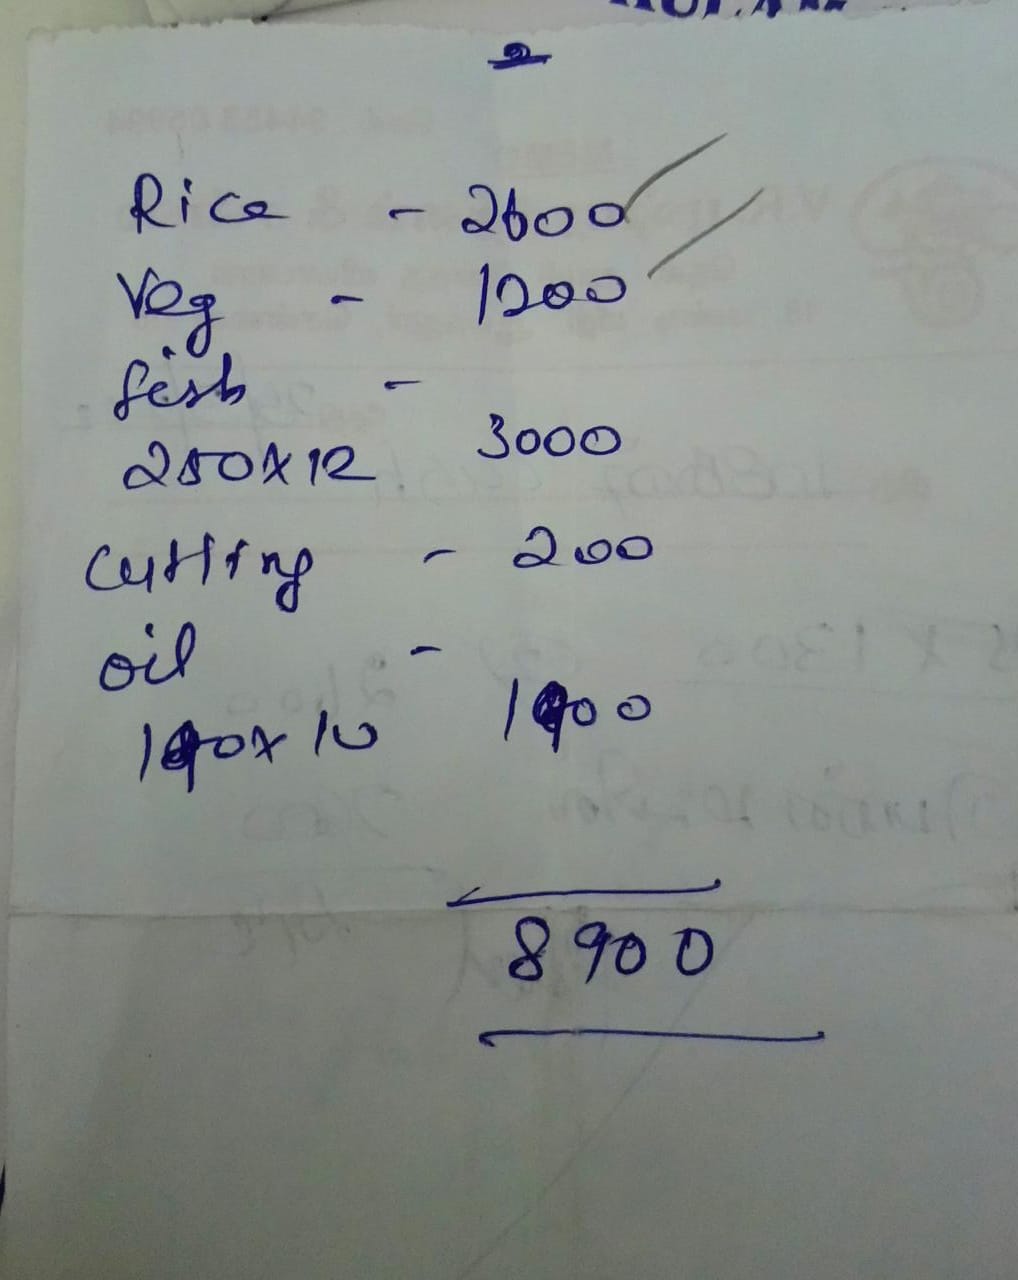 Rice - 2600
Veg - 1200
fish -
250x12 3000
cutting - 200
oil -
190x10 1900
8900